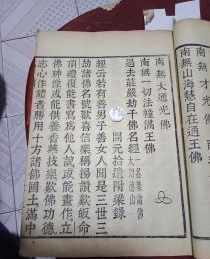 南無才光佛
南無山海慧自在通王佛
南無大通光佛
南無一切法幢滿王佛
過去莊嚴劫千佛名經
開元拾遺附梁錄
經云若有善男子善女人聞是三世三
劫諸佛名號歡喜信樂稱揚讚歎皈命
頂禮復能書寫為他人說或能畫作立
佛神像或能供養香華伎樂歎佛功德
志心作禮者勝用十方諸佛國土滿中